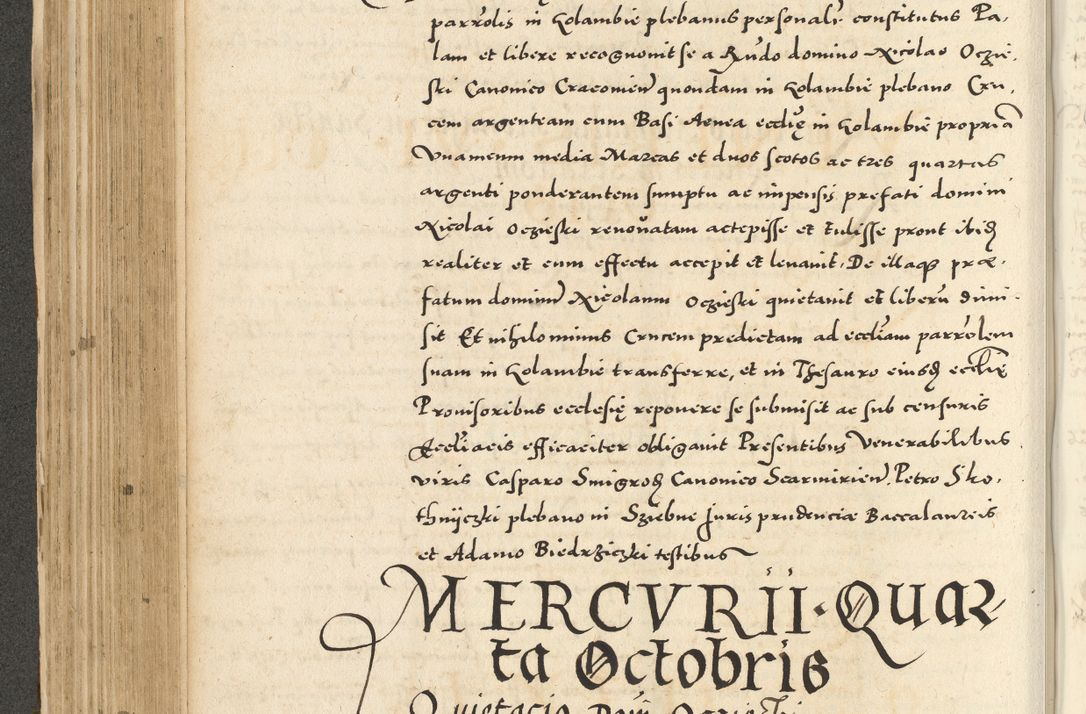 parrolis in Golambie plebanus personalr constitutus Pa,
lam et libere recognouit se a Rndo domino Nicolao Oczie,
ski Canonico Cracomien quondam in Golambie plebano Cru,
cem argenteam cum Basi Aenea ecclię in Golambie propria
Vnamcum media Marcas et duos scotos ac tres quartas
argenti ponderantem sumptu ac impensis prefati domini
Nicolai Oczieski renouatam accepisse et tulisse prout ibid
realiter et cum effectu accepit et leuauit, De illaque præ,
fatum dominum Nicolaum Oczieski quietauit et liberu dimi,
sit Et nihilominus Crucem predictam ad eccliam parrolem
suam in Golambie transferre, et in Thesauro eiusd ecclię
Prouisoribus ecclesię reponere se submisit ac sub censuris
Eccliacis efficaciter obligauit Presentibus Venerabilibus
viris Casparo Smigrod Canonico Scarmirien, Petro Sko,
thnijczki plebano in Szubne Juris prudenciæ Baccalaureis
et Adamo Biedrziczki testibus
MERCVRII · QUAR
ta Octobris
Quietacio Dni Oczieski